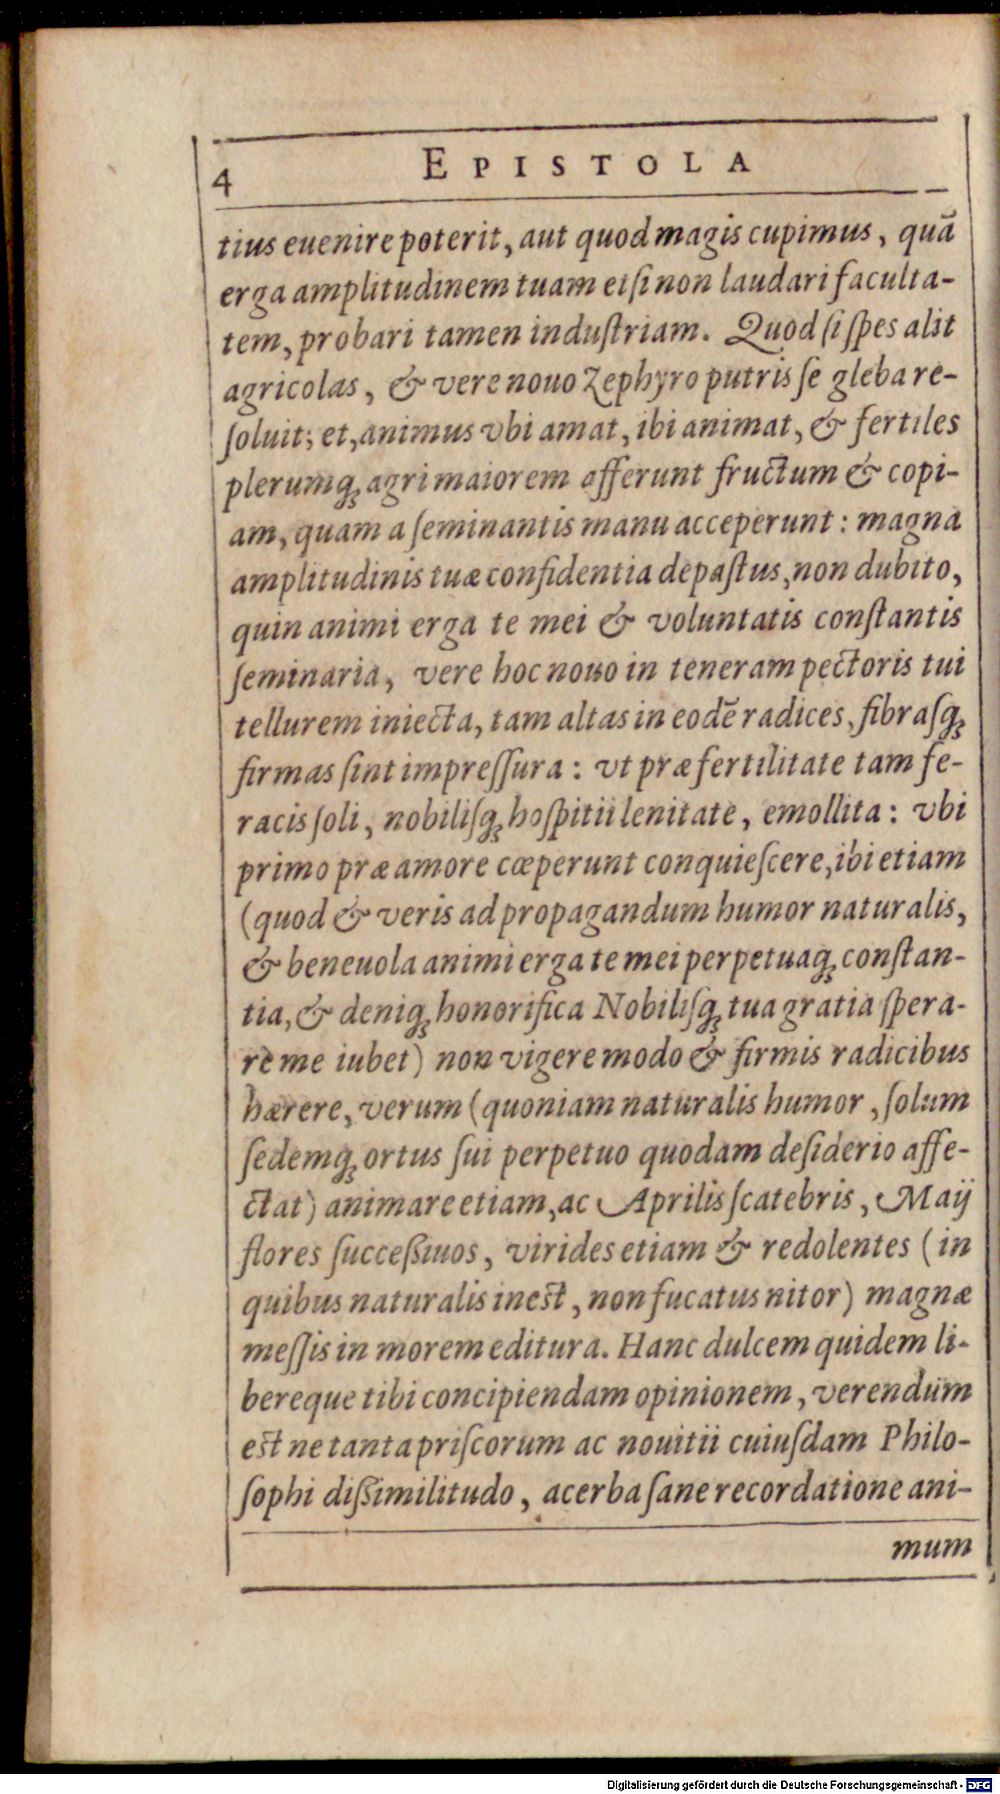 4 EPISTOLA
tius euenire poterit, aut quod magis cupimus, quã
erga amplitudinem tuam etſi non laudari faculta-
tem, probari tamen induſtriam. Quod ſi ſpes alit
agricolas, & vere nouo Zephyro putris ſe gleba re-
ſoluit; et, animus vbi amat, ibi animat, & fertiles
plerumq́ꝫ agri maiorem afferunt fructum & copi-
am, quam a ſeminantis manu acceperunt: magna
amplitudinis tuæ confidentia depaſtus, non dubito,
quin animi erga te mei & voluntatis conſtantis
ſeminaria, vere hoc nouo in teneram pectoris tui
tellurem iniecta, tam altas in eodẽ radices, fibraſqꝫ
firmas ſint impreſſura: vt præ fertilitate tam fe-
racis ſoli, nobiliſqꝫ hoſpitii lenitate, emollita: vbi
primo præ amore cœperunt conquieſcere, ibi etiam
(quod & veris ad propagandum humor naturalis,
& beneuola animi erga te mei perpetuaqꝫ conſtan-
tia, & deniqꝫ honorifica Nobiliſqꝫ tua gratia ſpera-
re me iubet) non vigere modo & firmis radicibus
hærere, verum (quoniam naturalis humor, ſolum
ſedemqꝫ ortus ſui perpetuo quodam deſiderio affe-
ctat) animare etiam, ac Aprilis ſcatebris, Maij
flores ſucceßiuos, virides etiam & redolentes (in
quibus naturalis ineſt, non fucatus nitor) magnæ
meſſis in morem editura. Hanc dulcem quidem li-
bereque tibi concipiendam opinionem, verendum
eſt ne tanta priſcorum ac nouitii cuiuſdam Philo-
ſophi dißimilitudo, acerba ſane recordatione ani-
mum
Digitalisierung gefördert durch die Deutsche Forschungsgemeinschaft - DFG